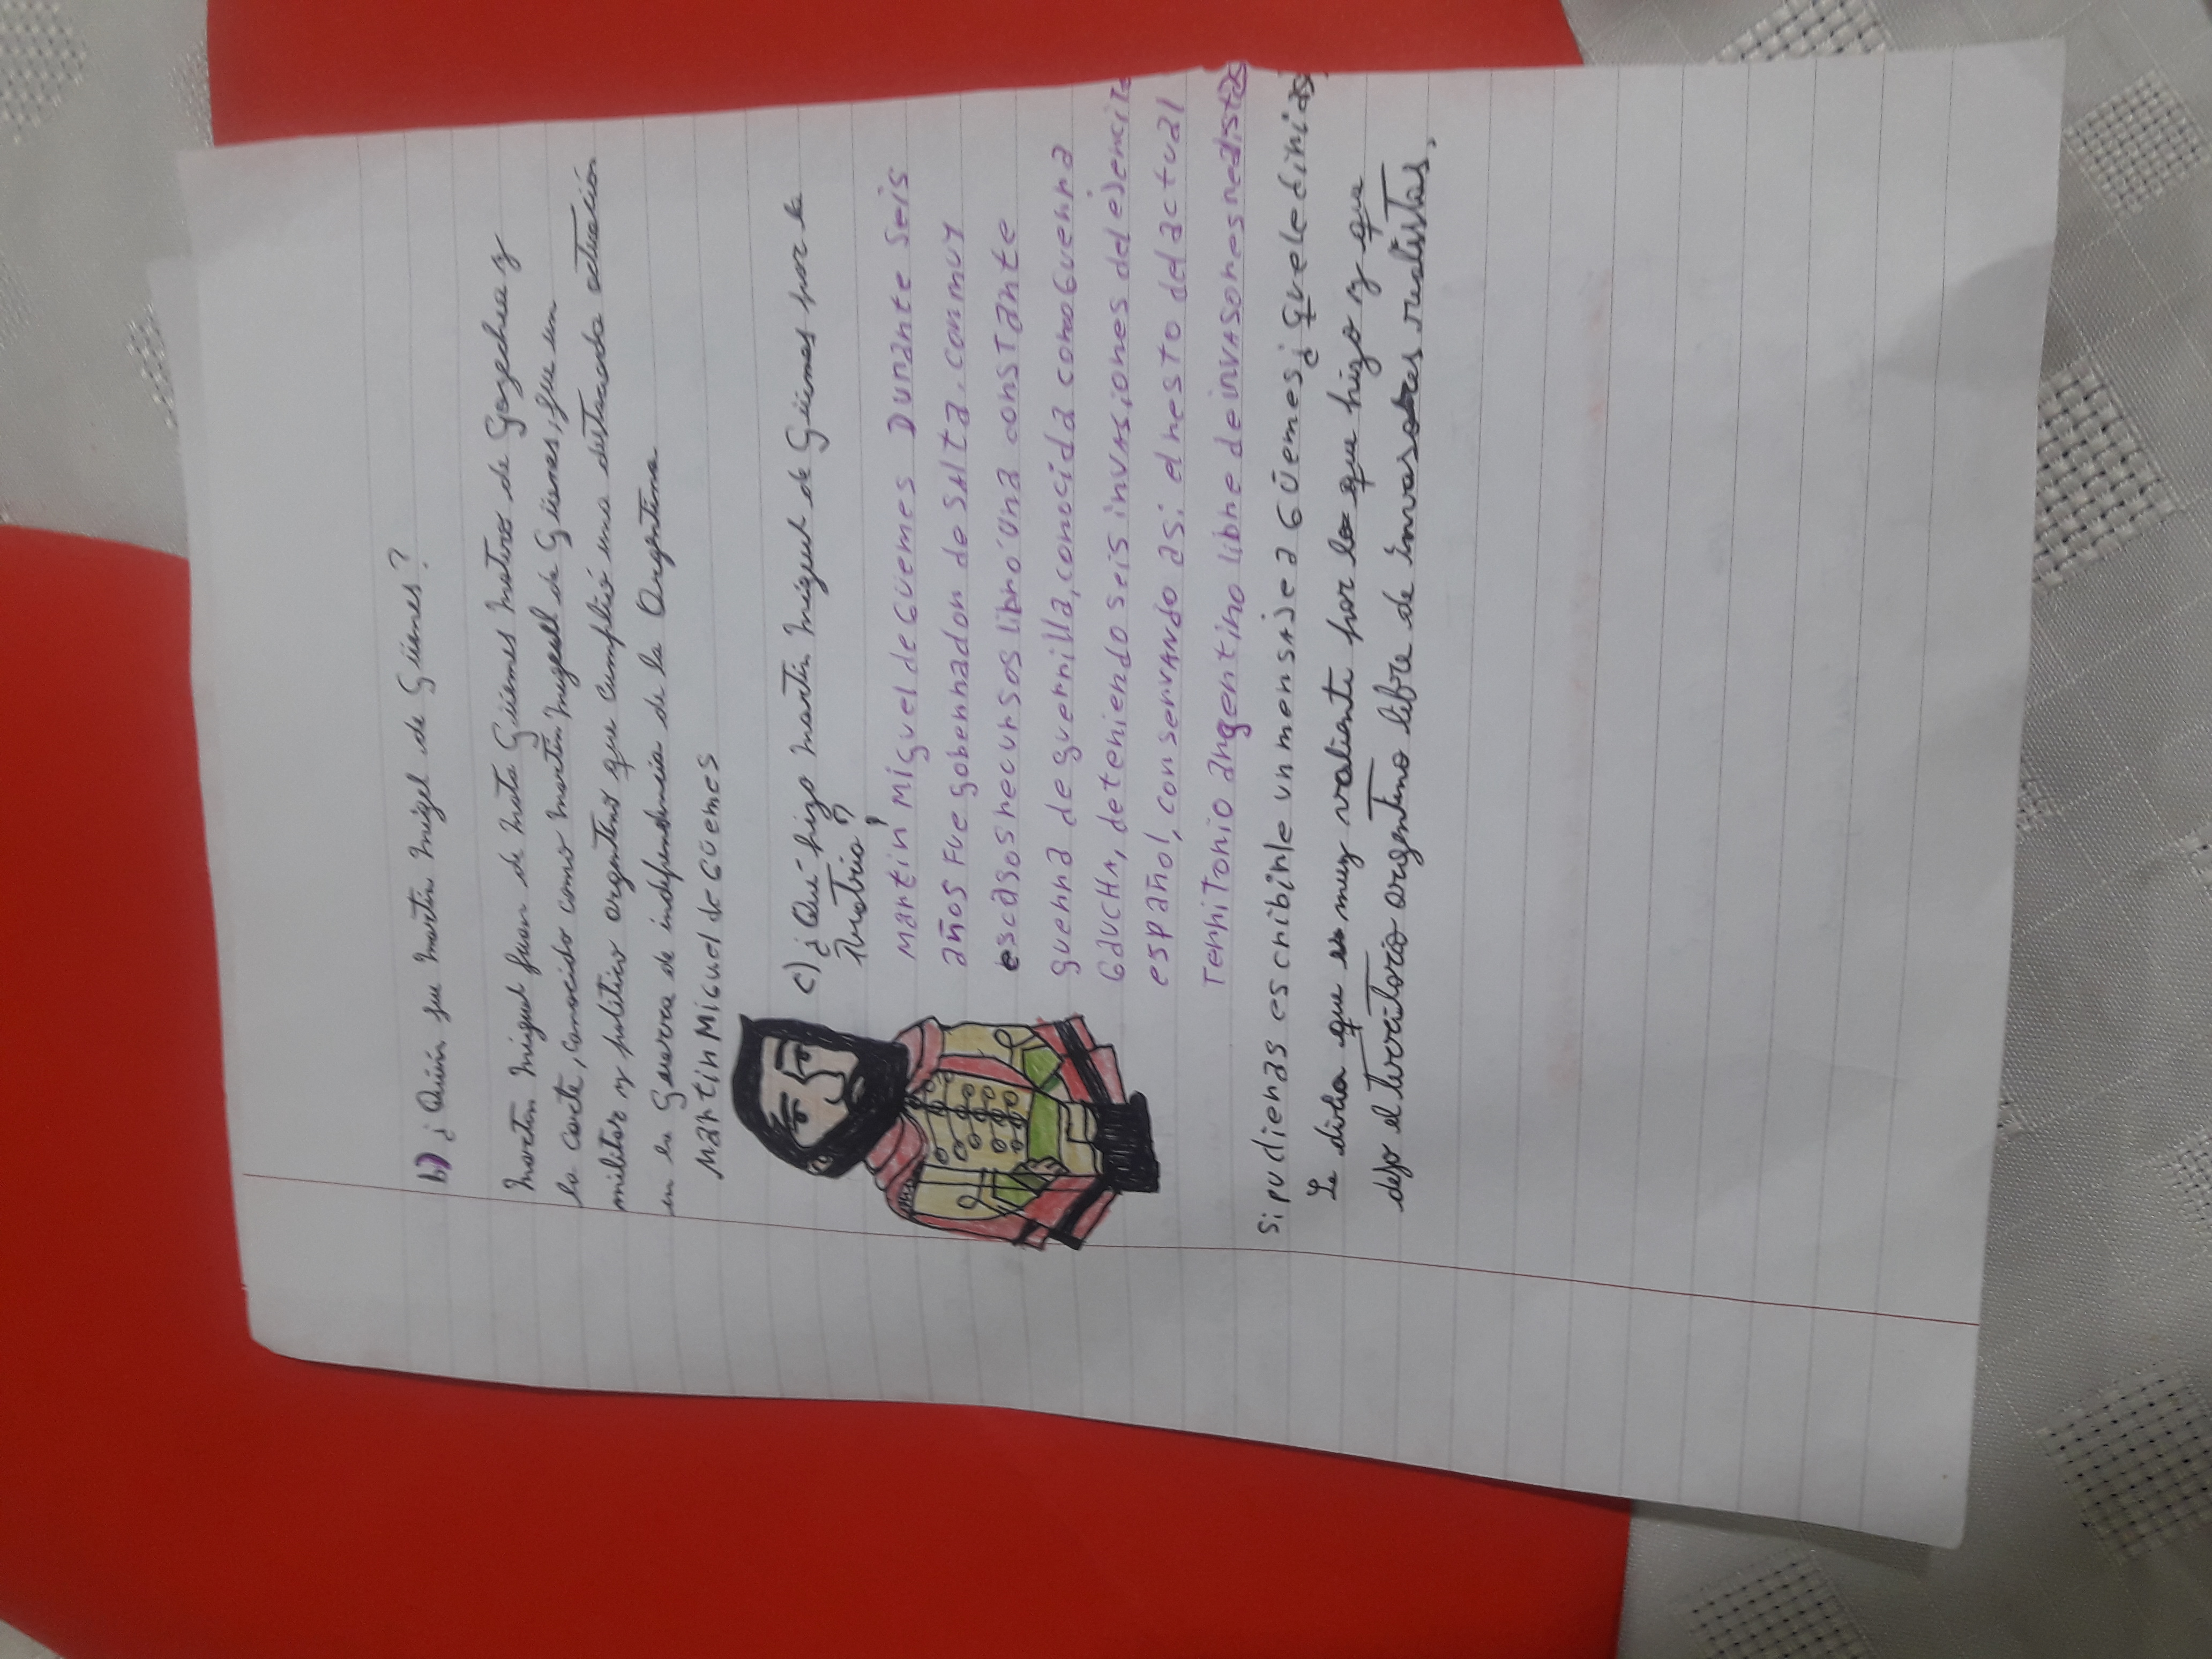 b) ¿Quién fue Martín Migel de Güemes?
Martín Miguel Juan de Mata Güemes Motros de Gozechea y
la corte, conocido como Martín Miguel de Güemes, fue un
militar y político argentino que cumplió una destacada actuación
en la Guerra de independencia de la Argentina
Martin Miguel de Güemes
c) ¿Qué hizo Martín Miguel de Güemes por la
Patria?
Martin Miguel de Güemes Durante seis
años fue gobernador de Salta, con muy
escasos recursos libró una constante
guerra de guerrilla, conocida como Guerra
Gaucha, deteniendo seis invasiones del ejercito
español, conservando asi el resto del actual
Territorio argentino libre de invasores realistas
Si pudieras escribirle un mensaje a Güemes ¿que le dirias
Le diria que es muy valiente por lo que hizo y que
dejo el territorio argentino libre de invasores realistas.